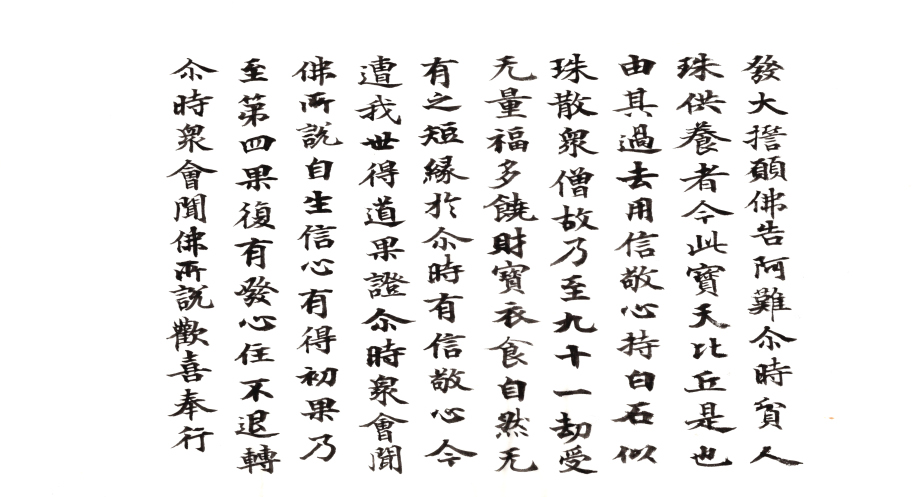 發大擔願佛告阿難尒時貧人
珠供養者今此寳天比丘是也
由其過去用信敬心持白石似
珠散衆僧故乃至九十一劫受
无量福多饒財寳衣食自然无
有之短緣於尒時有信敬心今
遭我世得道果證尒時衆會聞
佛所說自生信心有得初果乃
至第四果復有發心住不退轉
尒時衆會聞佛所說歡喜奉行